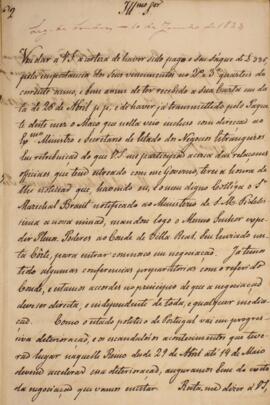 Illmo Snr
Vou dar a V.S. a certeza de haver sido pago o seu Saque de £ 335,
pela importancia dos seus vencimentos no 2º e 3º quarteis do
corrente anno, e bem assim de ter recebido a sua Carta em da-
ta de 28 de Abril p. p., e de haver já transmettido pelo Paque-
te deste mez o Maço que nella veio incluso com direcção ao
Exmo Ministro e Secretario de Estado dos Negocios Estrangeiros.
que V.S. me participa acerca das relações
officiaes que tem entrado com esse Governo, terei a honra de
lhe noticiar que, havendo eu, e o meu digno Collega o Snr
Marechal Brant notificado ao Ministerio de S. M. Fidelis-
sima a nossa missão, mandou logo o Mesmo Senhor expe-
dir Plenos Poderes ao Conde de Villa Real, Seu Enviado nes-
ta Côrte, para entrar comnosco em negociação. Já temos
tido algumas conferencias preparatorias com o referido
Conde, e estamos acordes no principio de que a negociação
deve ser directa, e independente de toda, e qualquer media-
ção. Como o estado politico de Portugal vai em progres-
siva deterioração, e os escandalosos acontecimentos que tive-
rão lugar naquelle Reino desde 29 de Abril até 14 de Maio
devem accelerar essa deterioração, auguramos bem do exito
da negociação que vamos entabolar. Resta-me dizer a V.S.